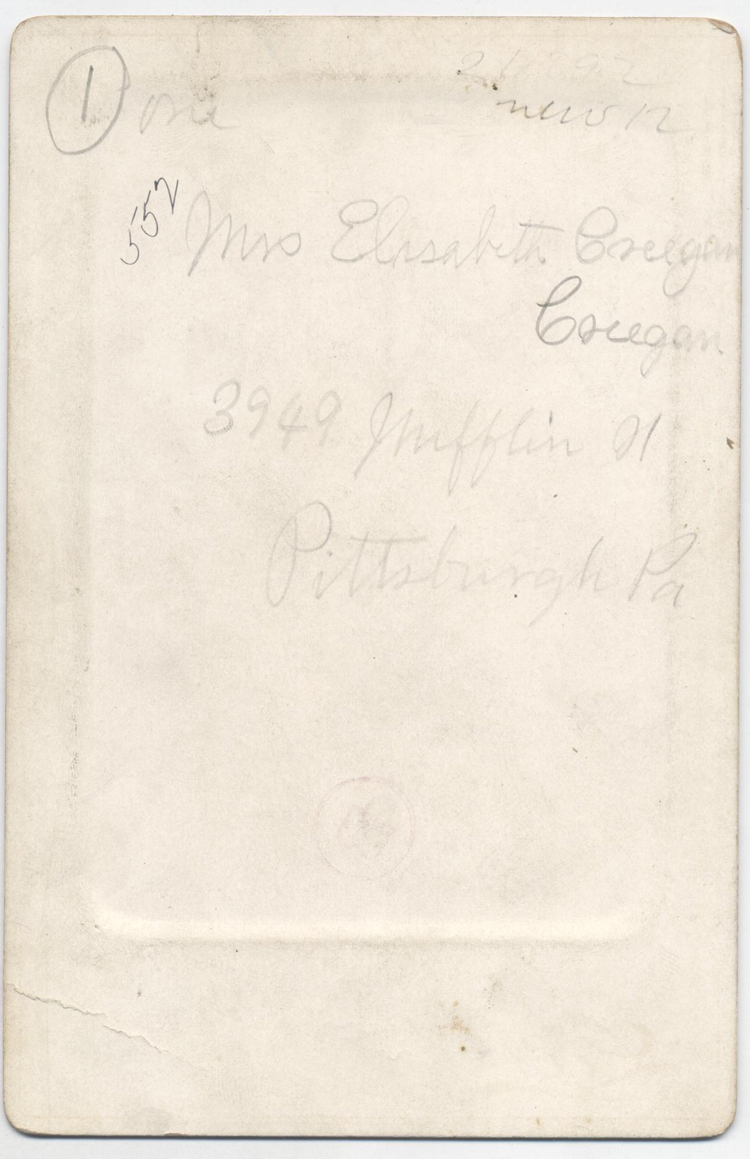 1 one
new 12
552
Mrs Elisabeth Creegan
Creegan
3949 Mifflin St
Pittsburgh Pa